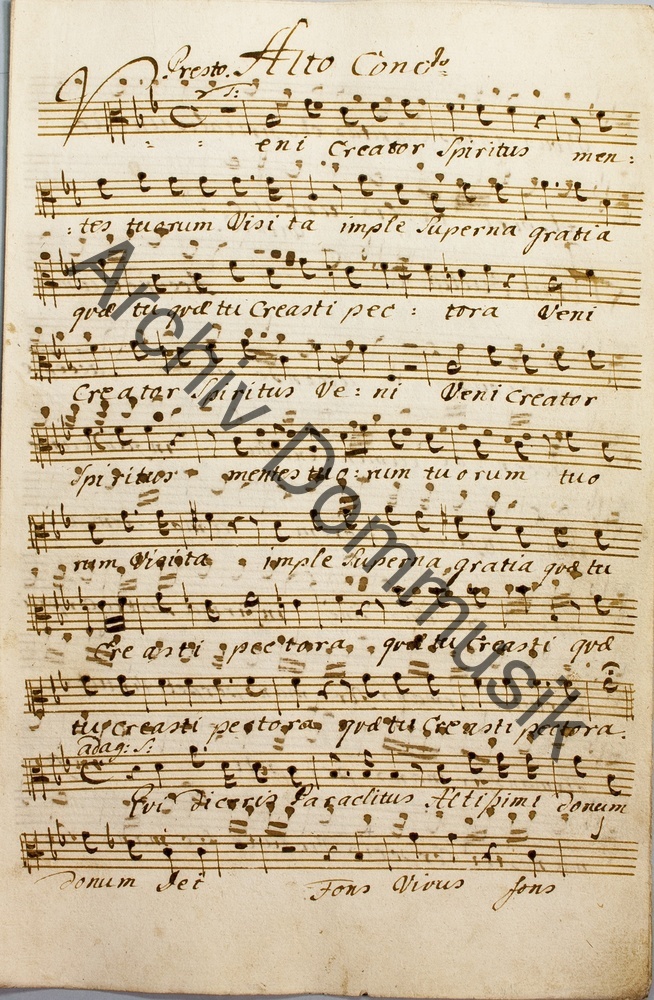 Presto. Alto Conc:to
s:
Veni Creator Spiritus men:
:tes tuorum Visi ta imple Superna gratia
quæ tu quæ tu Creasti pec: tora Veni
Creator Spiritus Ve: ni Veni Creator
Spiritus mentes tuo: rum tuorum tuo
rum Visita imple Superna gratia quæ tu
Cre asti pectora quæ tu Creasti quæ
tu Creasti pectora quæ tu Creasti pectora.
adag: s:
Qui diceris Paraclitus Altissimi donum
donum Dei Fons Vivus fons
Archiv Dommusik